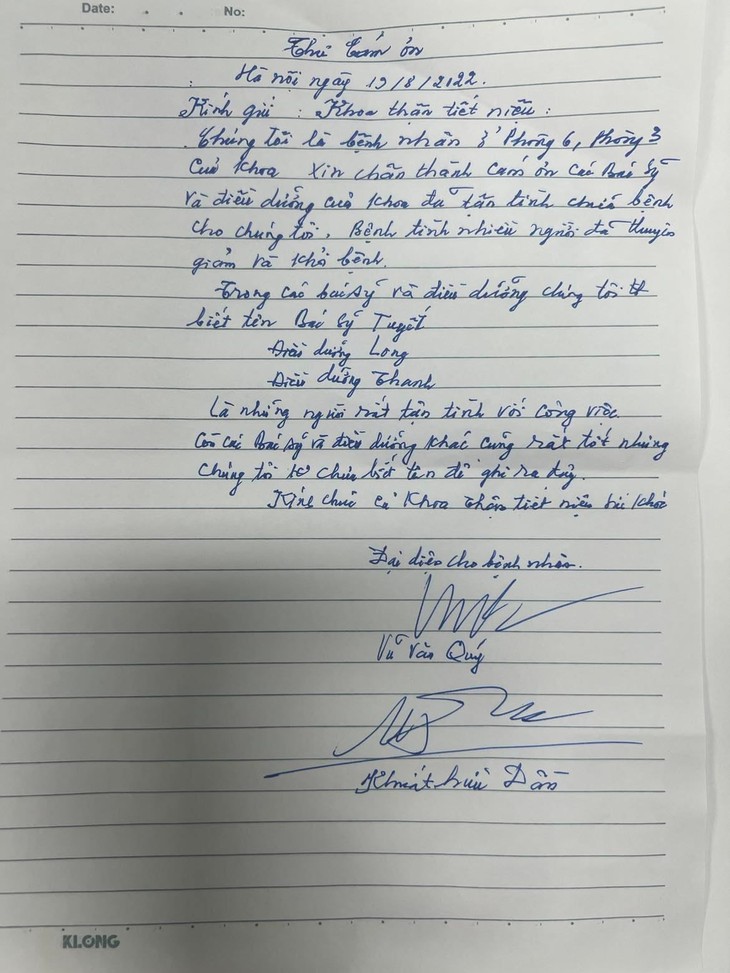 Date: . . No:
Thư Cám ơn
Hà nội ngày 19/8/2022.
Kính gửi : Khoa thận tiết niệu :
Chúng tôi là bệnh nhân ở Phòng 6, Phòng 3
của Khoa Xin chân thành Cám ơn các Bác sỹ
và điều dưỡng của Khoa đã tận tình chữa bệnh
cho chúng tôi. Bệnh tình nhiều người đã thuyên
giảm và khỏi bệnh.
Trong các bác sỹ và điều dưỡng chúng tôi
biết tên Bác sỹ Tuyết
Điều dưỡng Long
Điều dưỡng Thanh
Là những người rất tận tình với công việc.
Còn các Bác sỹ và điều dưỡng khác cũng rất tốt nhưng
chúng tôi chưa biết tên để ghi ra đây.
Kính chúc cả Khoa thận tiết niệu
Đại diện cho bệnh nhân.
Vũ Văn Quý
Khuất hữu Dần
KLONG